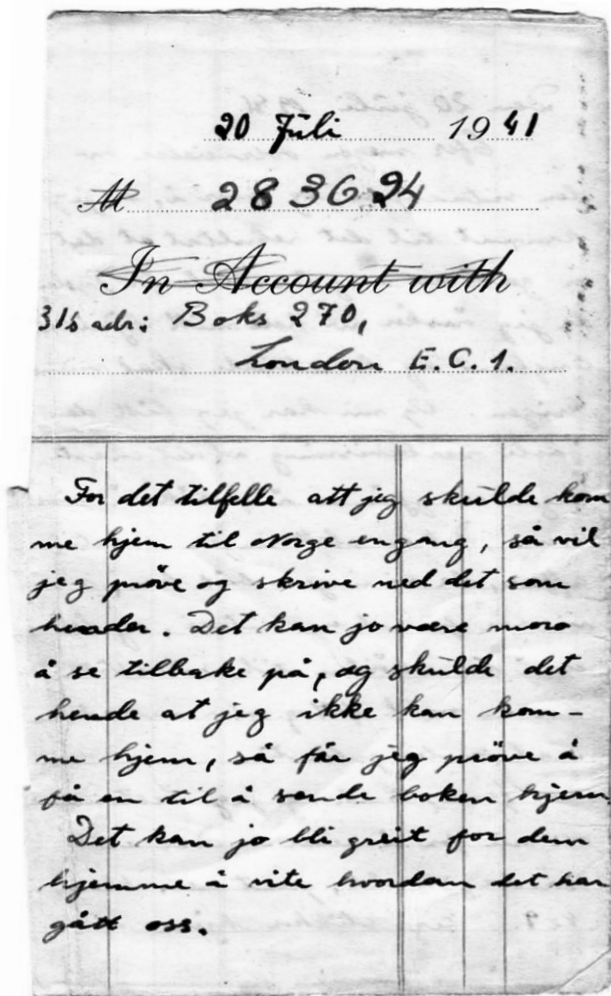 20 Jüli 1941
M 283624
In Account with
31s adr: Boks 270,
London E.C.1.
For det tilfelle att jeg skülde kom
me hjem til Norge engang, så vil
jeg pröve og skrive ned det som
hender. Det kan jo være moro
å se tilbake på, og skülde det
hende at jeg ikke kan kom-
me hjem, så får jeg pröve å
få en til å sende boken hjem
Det kan jo bli greit for dem
hjemme å vite hvordan det har
gått oss.